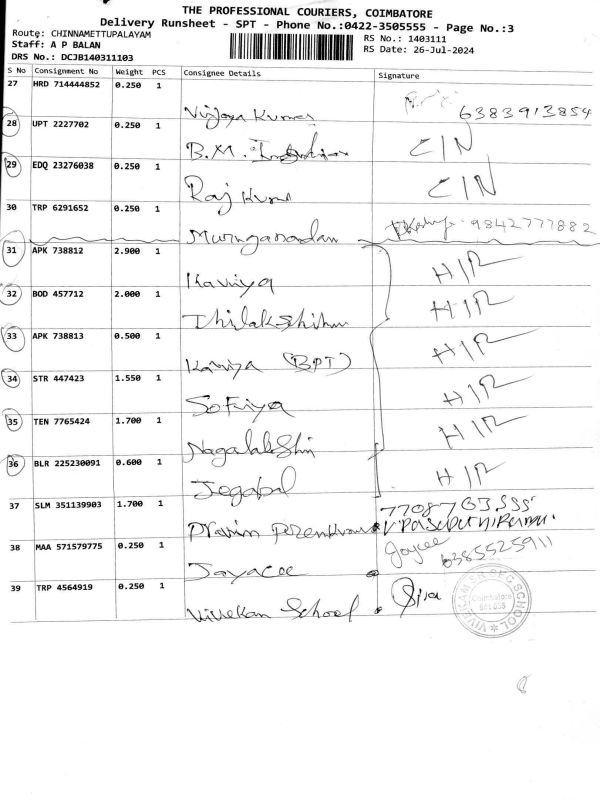 THE PROFESSIONAL COURIERS, COIMBATORE
Delivery Runsheet - SPT - Phone No.:0422-3505555 - Page No.:3
Route: CHINNAMETTUPALAYAM
RS No.: 1403111
Staff: A P BALAN
RS Date: 26-Jul-2024
DRS No.: DCJB140311103
S No Consignment No Weight PCS Consignee Details Signature
27 HRD 714444852 0.250 1
Vijaya Kumar 6383913854
28 UPT 2227702 0.250 1
B.M. CIN
29 EDQ 23276038 0.250 1
Raj Kumar CIN
30 TRP 6291652 0.250 1
Muruganandan 9842777882
31 APK 738812 2.900 1
Kaviya HIR
32 BOD 457712 2.000 1
HIR
33 APK 738813 0.500 1
Kaviya (BPT) HIR
34 STR 447423 1.550 1
Sofiya HIR
35 TEN 7765424 1.700 1
HIR
36 BLR 225230091 0.600 1
HIR
37 SLM 351139903 1.700 1
Pravin
38 MAA 571579775 0.250 1
Jayacee 6385525911
39 TRP 4564919 0.250 1
School